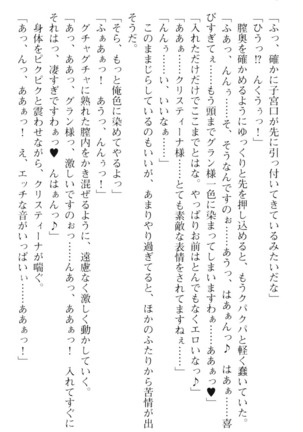 「ふっ、確かに子宮口が先に引っ付いてきているみたいだな」
「ひうっ！？　んくうぅっ！」
膣奥を確かめるようにゆっくりと先を押し込めると、もうクパクパと軽く蠢いていた。
「ふあっ、んんぅ……そ、そうなんですのぉ……あうっ、はぁぁんっ♪　はあぁ……喜びすぎてぇ……もう頭までグラン様一色に染まってしまいますわぁ……ああぁっ♥」
「入れただけだけでここまでとはな。やっぱりお前はとんでもなくエロいなっ♪」
「あぁぁ……クリスティーナ様……とても素敵な表情をされてますねぇ……」
「んんぅ……い、いいなぁ……」
このままじらしているのもいいが、あまりやり過ぎてると、ほかのふたりから苦情が出そうだ。
「そら、もっと俺色に染めてやるよっ」
「ふぁぁぁっ！　あうっ、んんぅっ！」
グチャグチャに熟れた膣内をかき混ぜるように、遠慮なく激しく動かしていく。
「あっ、ああっ、グラン様っ、激しいですのぉっ……んあっ、ああぁっ！　入れてすぐにそれはっ、凄すぎですわぁっ♥　んはぁんっ♪」
身体をビクビクと震わせながら、クリスティーナが喘ぐ。
「あっ、んっ、あぁぁっ！　え、エッチな音がいっぱいぃ……ああぁっ！